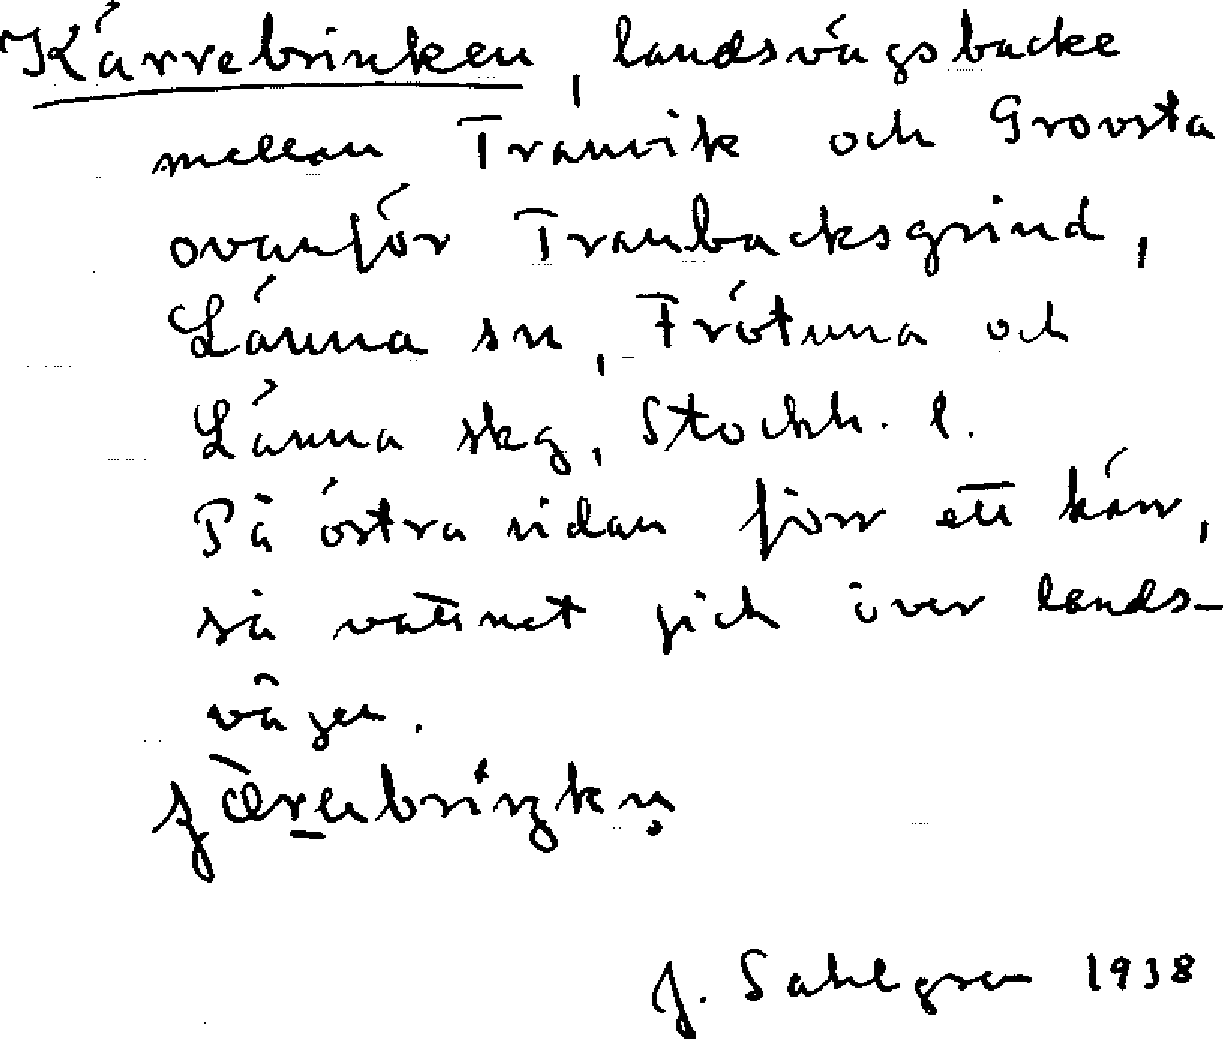 Kärrebrinken, landsvägsbacke
mellan Tranvik och Grovsta
ovanför Tranbacksgrind,
Länna sn, Frötuna och
Länna skg, Stockh. l.
På östra sidan förr ett kärr,
så vattnet gick över lands-
vägen.
J. Sahlgren 1938